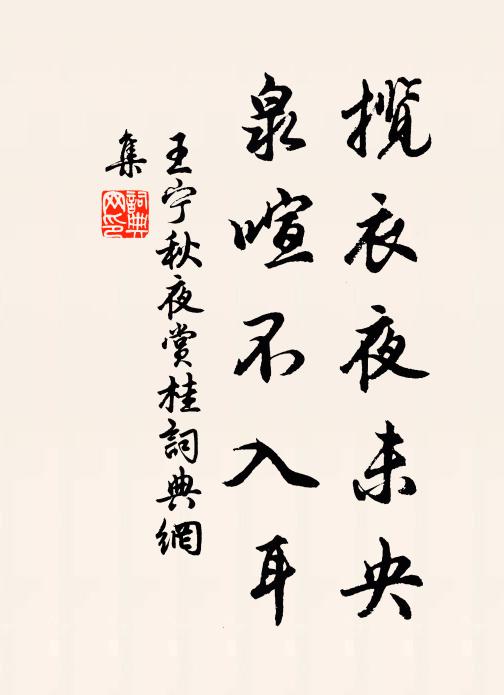 攬衣夜未央
泉喧不入耳
王宁秋夜赏桂詞典網
集
詞典
网印